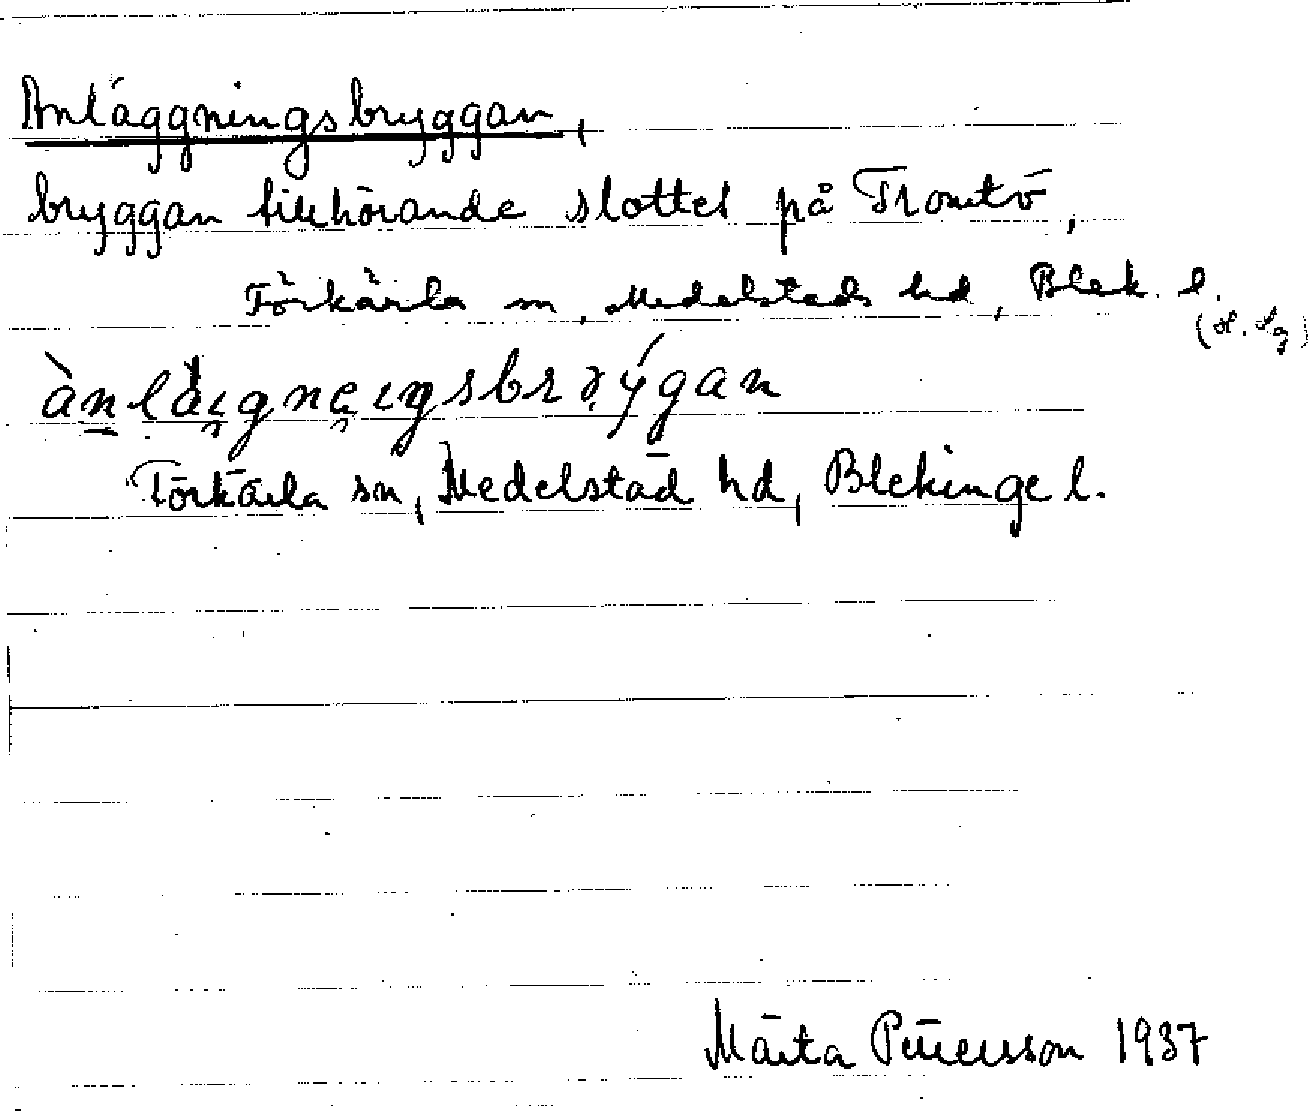 Anläggningsbryggan,
bryggan tillhörande slottet på Tromtö,
Förkärla sn, Medelstads hd, Blek. l.
Förkärla sn, Medelstad hd, Blekinge l.
Märta Petersson 1937